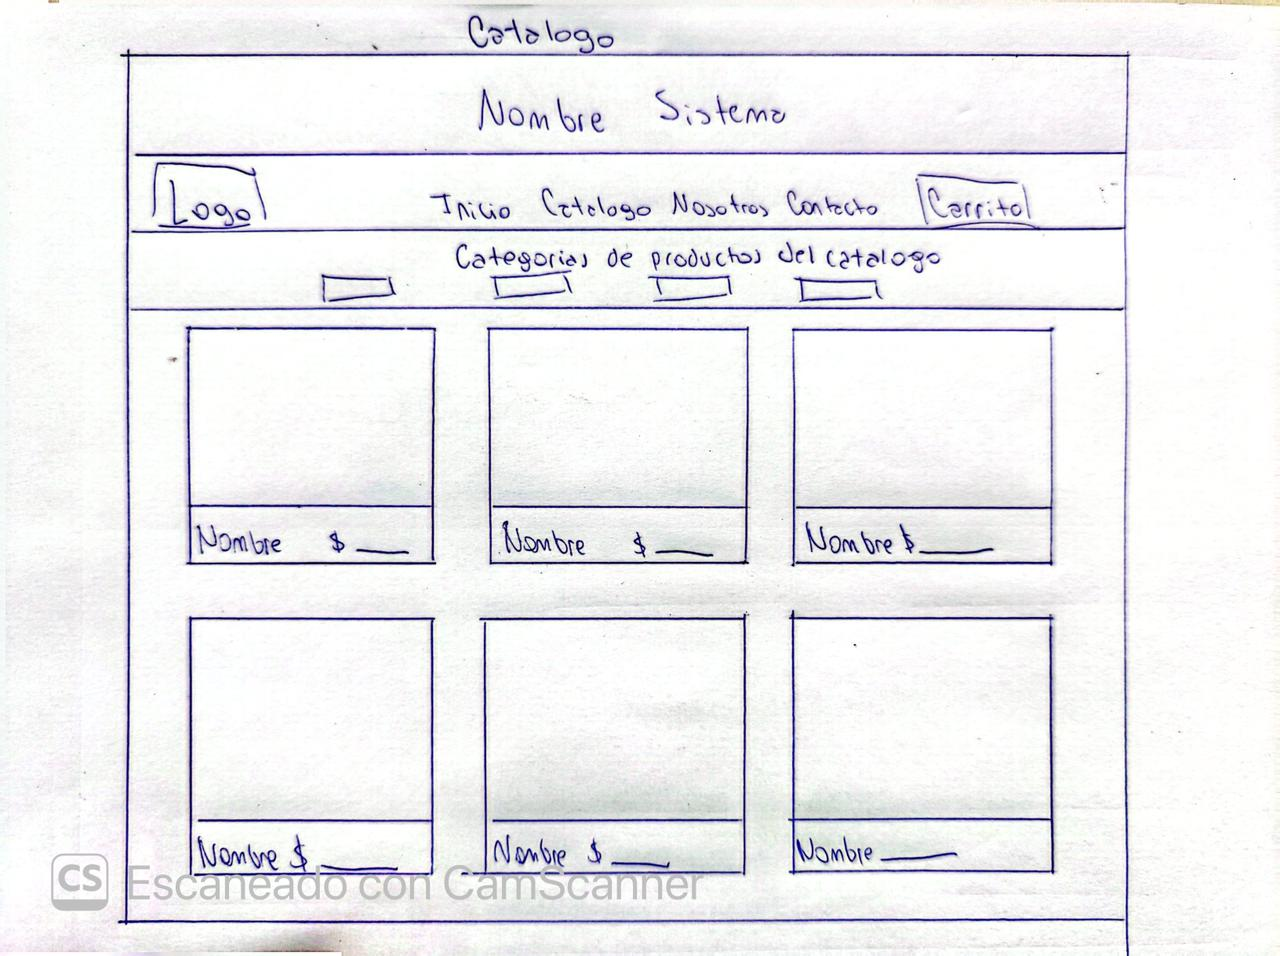 Catalogo
Nombre Sistema
Logo Inicio Catalogo Nosotros Contacto Carrito
Categorias de productos del catalogo
Nombre $ Nombre $ Nombre $
Nombre $ Nombre $ Nombre
CS Escaneado con CamScanner